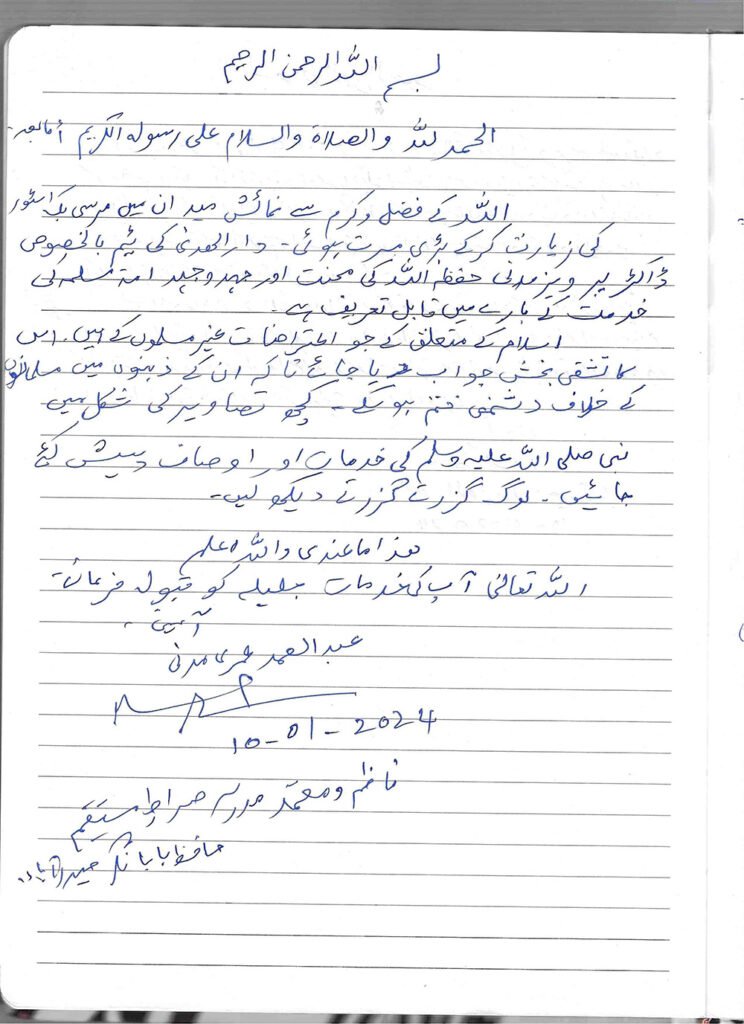 بسم اللہ الرحمن الرحیم
الحمد للہ والصلاۃ والسلام علی رسولہ الکریم أما بعد۔
اللہ کے فضل وکرم سے نمائش میدان میں مرسی بک اسٹور
کی زیارت کرکے بڑی مسرت ہوئی۔ دارالھدیٰ کی ٹیم بالخصوص
ڈاکٹر پرویز مدنی حفظہ اللہ کی محنت اور جہد وجہد امۃ مسلمہ کی
خدمت کے بارے میں قابل تعریف ہے۔
اسلام کے متعلق کے جو اعتراضات غیر مسلموں کے ہیں، اس
کا تشفی بخش جواب دیا جائے تاکہ ان کے ذہنوں میں مسلمانوں
کے خلاف دشمنی ختم ہوسکے۔ کچھ تصاویر کی شکل میں
نبی صلی اللہ علیہ وسلم کی خدمات اور اوصاف پیش کئے
جائیں۔ لوگ گزرتے گزرتے دیکھ لیں۔
ھذا ما عندی واللہ اعلم
اللہ تعالیٰ آپ کی خدمات جلیلہ کو قبول فرمائے۔
آمین۔
عبد الصمد عمری مدنی
10-01-2024
ناظم ومعتمد مدرسہ صراط مستقیم
حافظ بابا نگر حیدرآباد۔